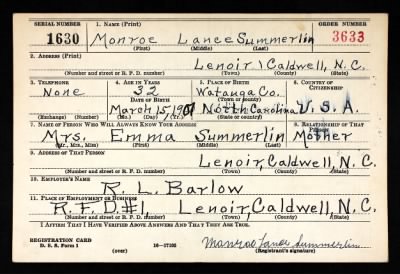 SERIAL NUMBER 1. NAME (Print) ORDER NUMBER
1630 Monroe Lance Summerlin 3633
(First) (Middle) (Last)
2. ADDRESS (Print)
Lenoir Caldwell, N.C.
(Number and street or R. F. D. number) (Town) (County) (State)
3. TELEPHONE 4. AGE IN YEARS 5. PLACE OF BIRTH 6. COUNTRY OF CITIZENSHIP
None 32 Watauga Co.
DATE OF BIRTH (Town or county)
March 15, 1907 North Carolina U.S.A.
(Exchange) (Number) (Mo.) (Day) (Yr.) (State or country)
7. NAME OF PERSON WHO WILL ALWAYS KNOW YOUR ADDRESS 8. RELATIONSHIP OF THAT PERSON
Mrs. Emma Summerlin Mother
(Mr., Mrs., Miss) (First) (Middle) (Last)
9. ADDRESS OF THAT PERSON
Lenoir, Caldwell, N.C.
(Number and street or R. F. D. number) (Town) (County) (State)
10. EMPLOYER'S NAME
R. L. Barlow
11. PLACE OF EMPLOYMENT OR BUSINESS
R.F.D.#1, Lenoir, Caldwell, N.C.
(Number and street or R. F. D. number) (Town) (County) (State)
I AFFIRM THAT I HAVE VERIFIED ABOVE ANSWERS AND THAT THEY ARE TRUE.
REGISTRATION CARD
D. S. S. Form 1 (over) 16-17105 Monroe Lance Summerlin
(Registrant's signature)